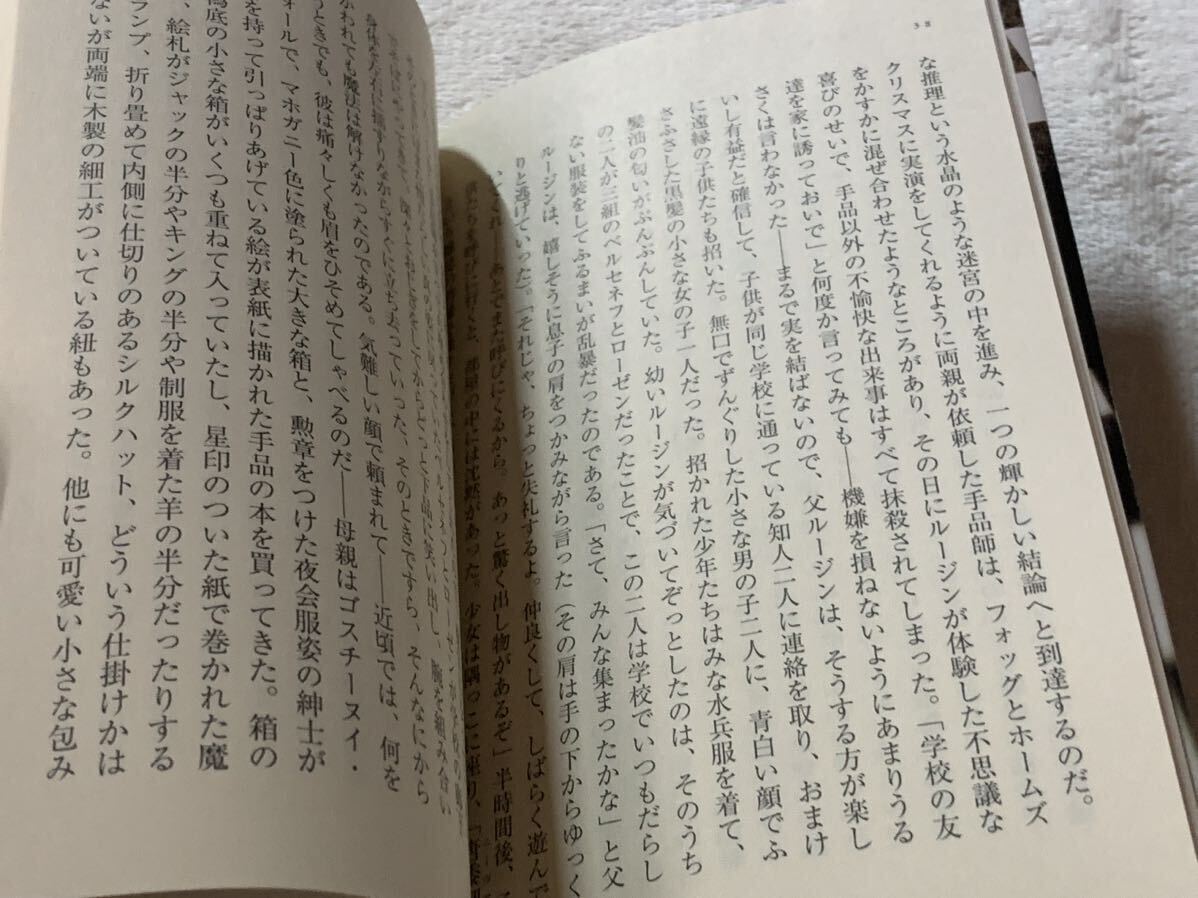 38
な推理という水晶のような迷宮の中を進み、一つの輝かしい結論へと到達するのだ。
クリスマスに実演をしてくれるように両親が依頼した手品師は、フォッグとホームズ
をかすかに混ぜ合わせたようなところがあり、その日にルージンが体験した不思議な
喜びのせいで、手品以外の不愉快な出来事はすべて抹殺されてしまった。「学校の友
達を家に誘っておいで」と何度か言ってみても――機嫌を損ねないようにあまりうる
さくは言わなかった――まるで実を結ばないので、父ルージンは、そうする方が楽し
いし有益だと確信して、子供が同じ学校に通っている知人二人に連絡を取り、おまけ
に遠縁の子供たちも招いた。無口でずんぐりした小さな男の子二人に、青白い顔でふ
さふさした黒髪の小さな女の子一人だった。招かれた少年たちはみな水兵服を着て、
髪油の匂いがぷんぷんしていた。幼いルージンが気づいてぞっとしたのは、そのうち
の二人が三組のベルセネフとローゼンだったことで、この二人は学校でいつもだらし
ない服装をしてふるまいが乱暴だったのである。「さて、みんな集まったかな」と父
ルージンは、嬉しそうに息子の肩をつかみながら言った（その肩は手の下からゆっく
りと逃げていった）。「それじゃ、ちょっと失礼するよ。仲良くして、しばらく遊んで
いてくれ――あとでまた呼びにくるから。あっと驚く出し物があるぞ」半時間後、
たちを呼びに行くと、部屋の中には沈黙があった。少女は隅っこに座り、
身体を左右に揺すりながらすぐに立ち去っていった、そのときですら、そんなにから
かわれても魔法は解けなかったのである。気難しい顔で頼まれて――近頃では、何を
うときでも、彼は痛々しくも眉をひそめてしゃべるのだ――母親はゴスチーヌイ・
ォールで、マホガニー色に塗られた大きな箱と、勲章をつけた夜会服姿の紳士が
を持って引っぱりあげている絵が表紙に描かれた手品の本を買ってきた。箱の
底の小さな箱がいくつも重ねて入っていたし、星印のついた紙で巻かれた魔
、絵札がジャックの半分やキングの半分や制服を着た羊の半分だったりする
ランプ、折り畳めて内側に仕切りのあるシルクハット、どういう仕掛けかは
ないが両端に木製の細工がついている紐もあった。他にも可愛い小さな包み